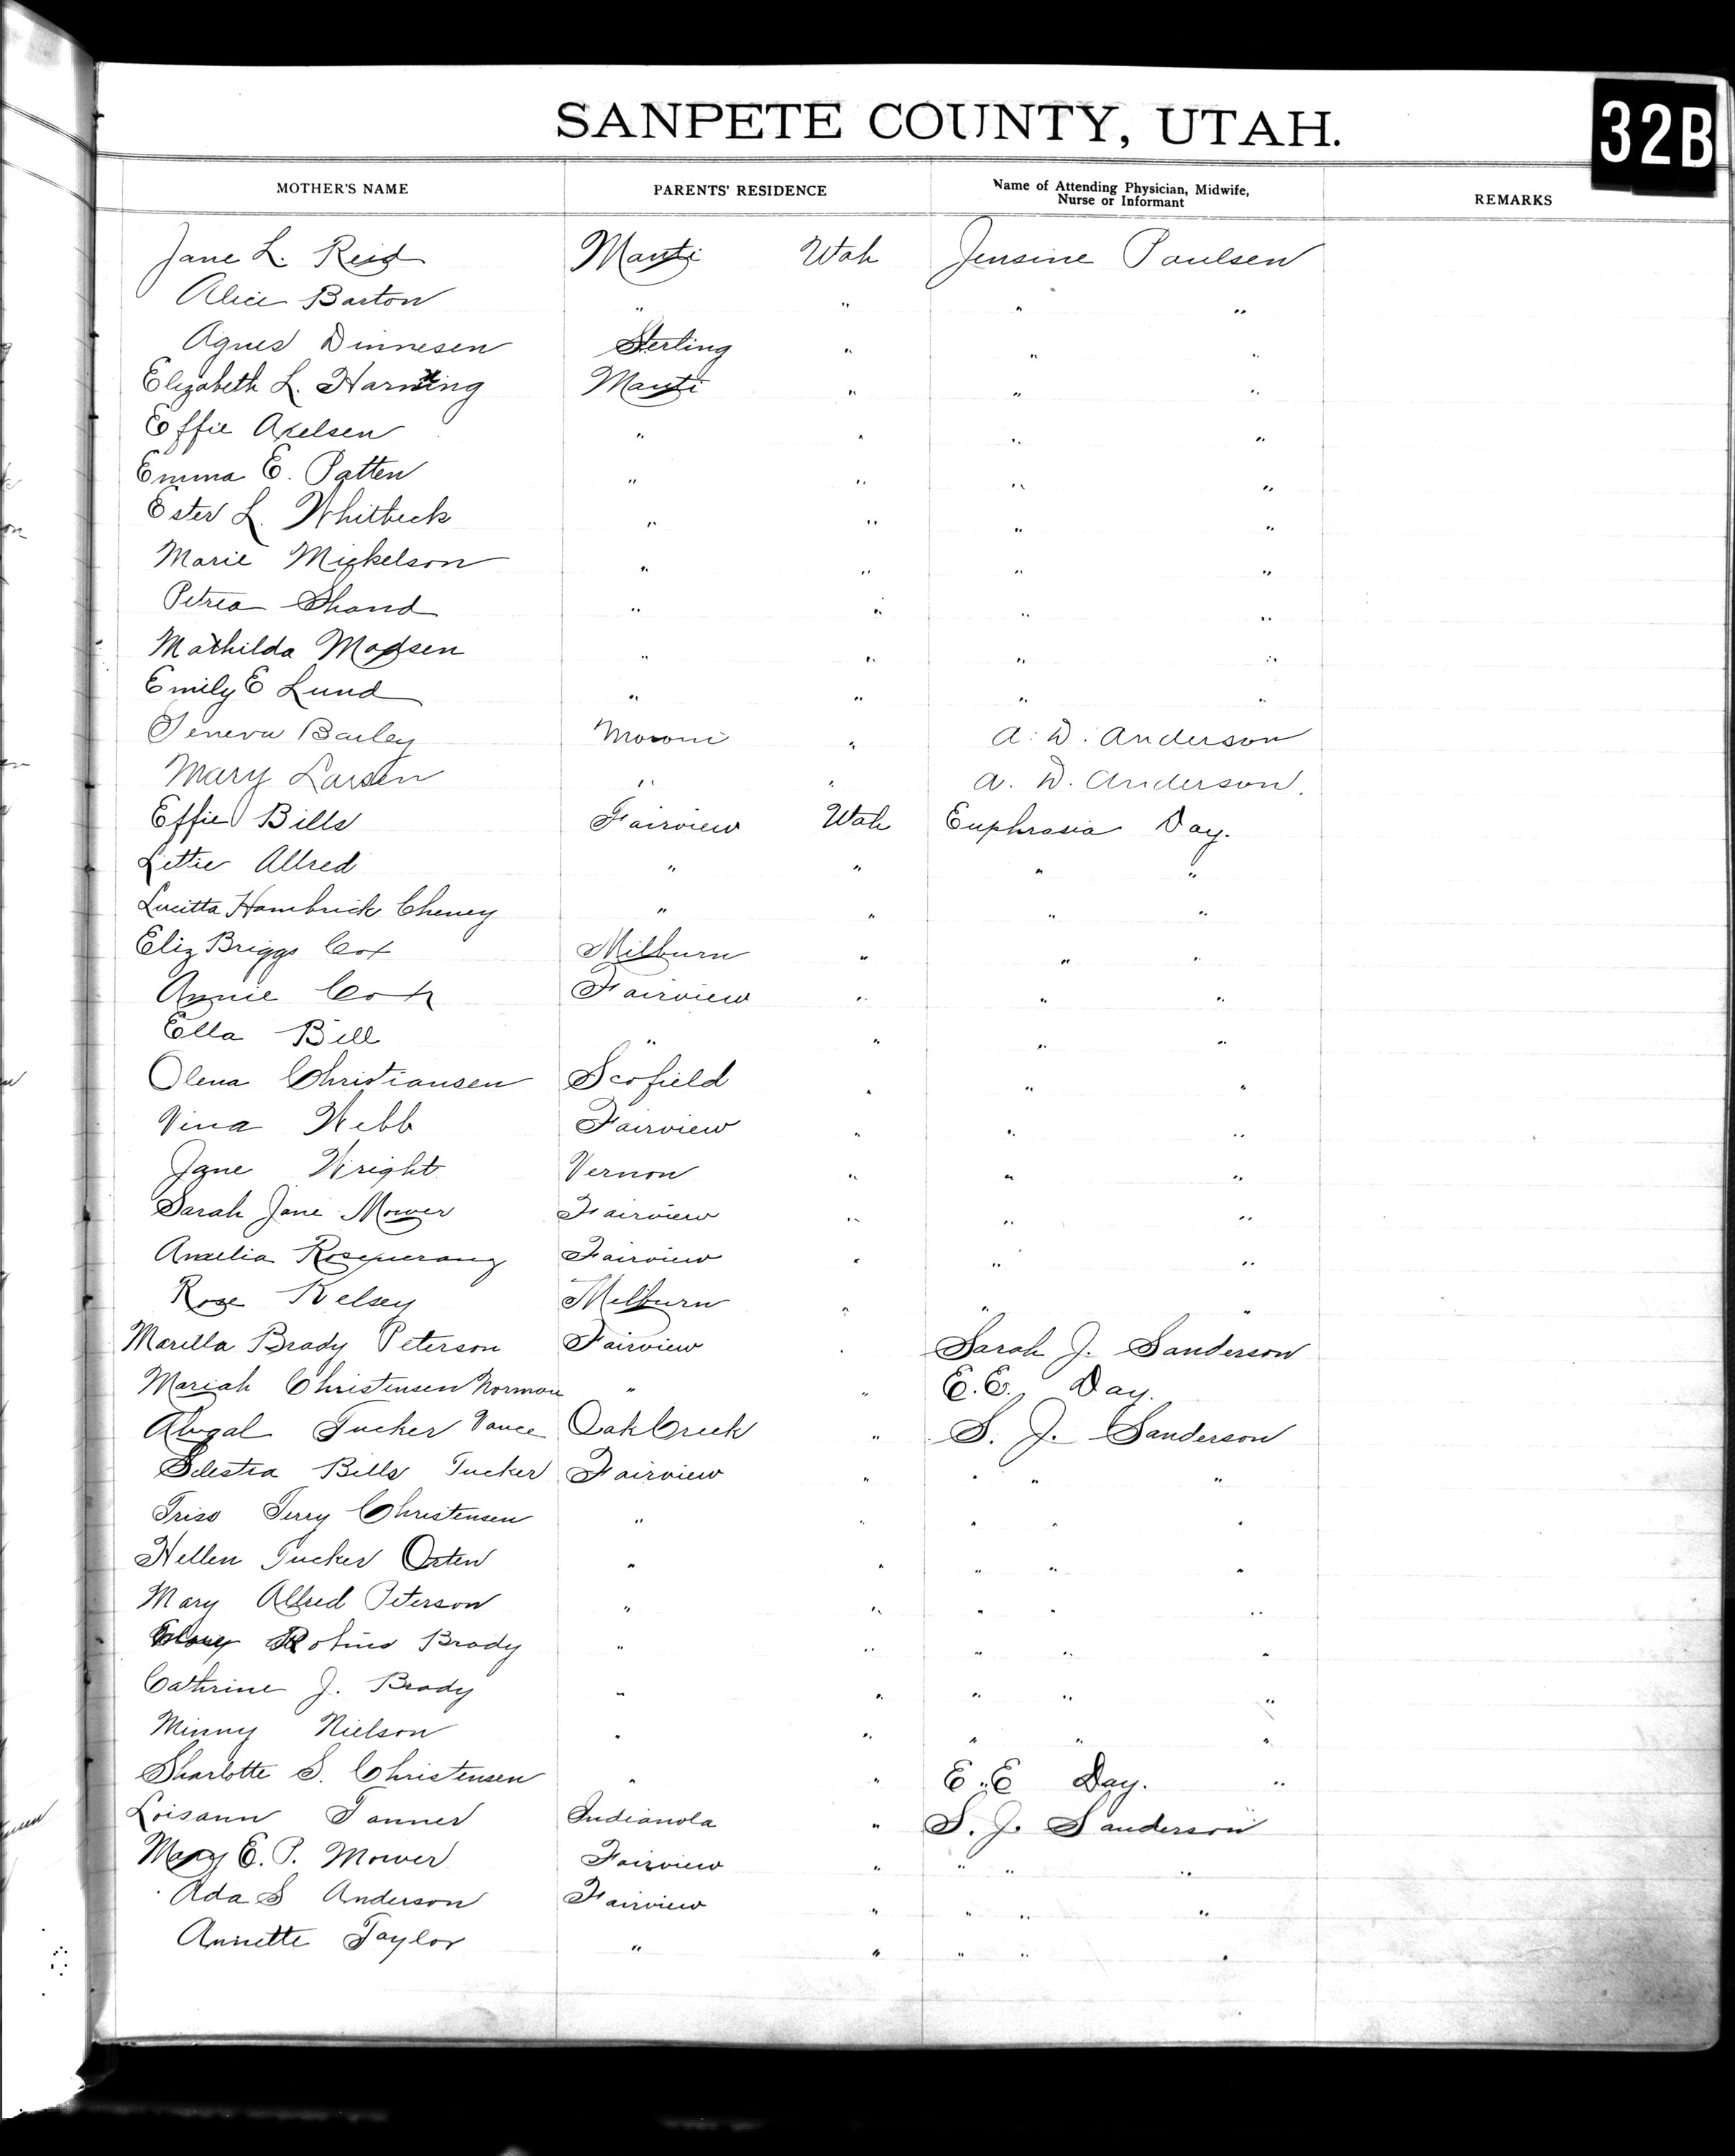 SANPETE COUNTY, UTAH.
32B
MOTHER'S NAME PARENTS' RESIDENCE Name of Attending Physician, Midwife, Nurse or Informant REMARKS
Jane L. Reid Manti Utah Jensine Paulsen
Alice Barton " " " "
Agnes Dinnesen Sterling " " "
Elizabeth L. Manti " " "
Effie Axelsen " " " "
Emma E. Patten " " " "
Ester L. Whitbeck " " " "
Marie Mickelson " " " "
Petrea Shand " " " "
Mathilda Madsen " " " "
Emily E Lund " " " "
Geneva Bailey Moroni " A. D. Anderson
Mary Larsen " " A. D. Anderson.
Effie Bills Fairview Utah Euphrasia Day.
Lettie Allred " " " "
Lucitta Hambrick Cheney " " " "
Eliz Briggs Cox Milburn " " "
Annie Cox Fairview " " "
Ella Bill " " " "
Olena Christiansen Scofield " " "
Vina Webb Fairview " " "
Jane Wright Vernon " " "
Sarah Jane Mower Fairview " " "
Amelia Fairview " " "
Rose Kelsey Milburn " " "
Marilla Brady Peterson Fairview " Sarah J. Sanderson
Mariah Christensen Norman " " E. E. Day.
Abigal Tucker Vance Oak Creek " S. J. Sanderson
Selestia Bills Tucker Fairview " " " "
Terry Christensen " " " " "
Hellen Tucker " " " " "
Mary Allred Peterson " " " " "
Brady " " " " "
Cathrine J. Brady " " " " "
Minny Nielson " " " " "
Sharlotte S. Christensen " " E. E Day. "
Loisann Tanner Indianola " S. J. Sanderson
Mary E. P. Mower Fairview " " " "
Ada S Anderson Fairview " " " "
Annette Taylor " " " " "